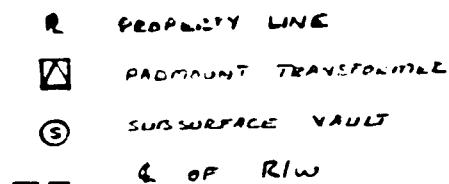 PROPERTY LINE
PADMOUNT TRANSFORMER
S SUBSURFACE VAULT
℄ OF R/W